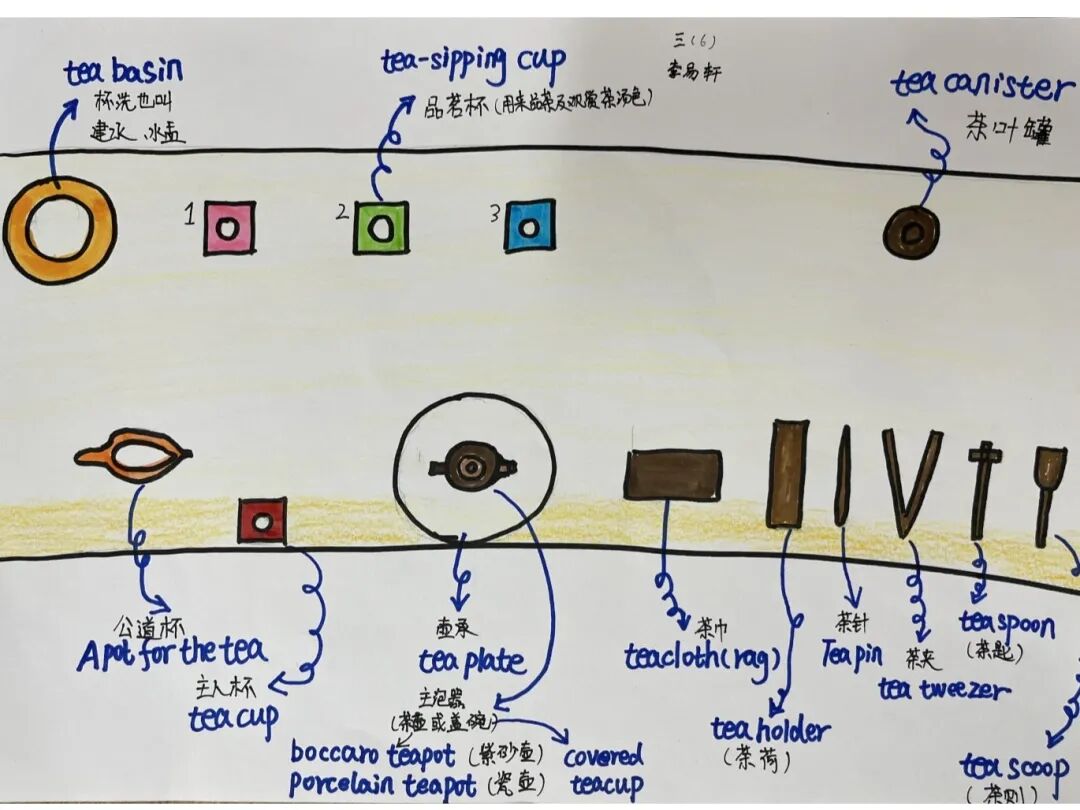 三(6)
李易轩
tea basin
杯洗也叫
建水、水盂
tea-sipping cup
品茗杯(用来品茶及观赏茶汤色)
tea canister
茶叶罐
1
2
3
公道杯
A pot for the tea
主人杯
tea cup
壶承
tea plate
主泡器
(茶壶或盖碗)
boccaro teapot (紫砂壶)
porcelain teapot (瓷壶)
covered
teacup
茶巾
teacloth(rag)
tea holder
(茶荷)
茶针
Tea pin
茶夹
tea tweezer
teaspoon
(茶匙)
tea scoop
(茶则)